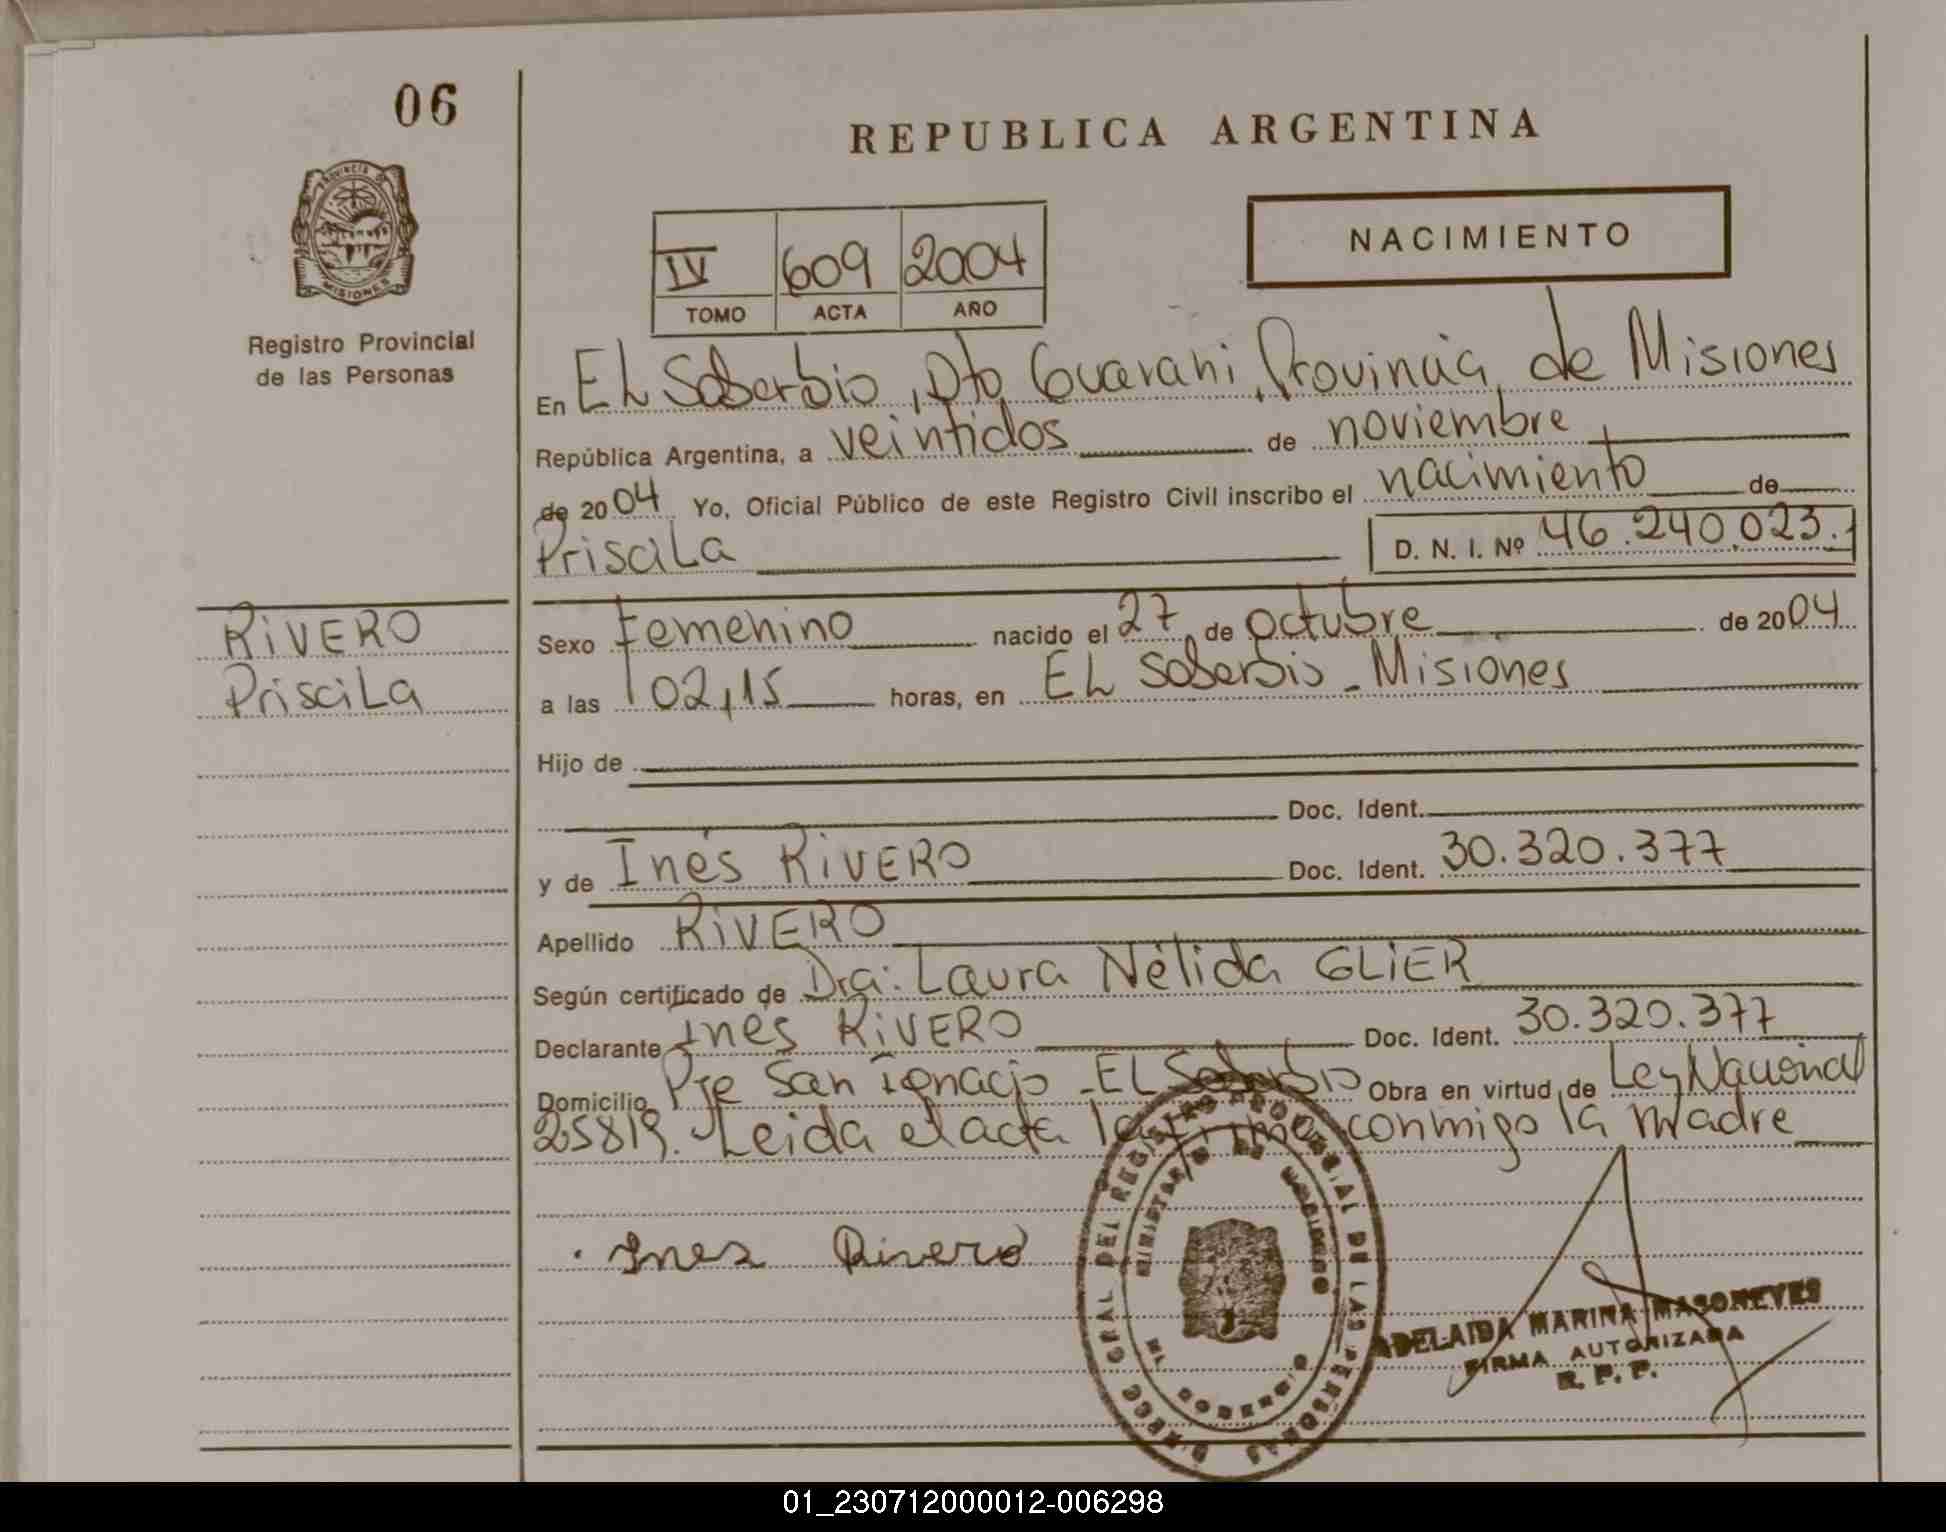 06
REPUBLICA ARGENTINA
PROVINCIA DE
MISIONES
Registro Provincial
de las Personas
IV 609 2004
TOMO ACTA AÑO
NACIMIENTO
En EL Soberbio, Dto Guarani, Provincia de Misiones
República Argentina, a veintidos de noviembre
de 2004 Yo, Oficial Público de este Registro Civil inscribo el nacimiento de
Priscila D. N. I. Nº 46.240.023.
RIVERO
Priscila
Sexo Femenino nacido el 27 de octubre de 2004
a las 02,15 horas, en EL Soberbio - Misiones
Hijo de
Doc. Ident.
y de Inés RIVERO Doc. Ident. 30.320.377
Apellido RIVERO
Según certificado de Dra: Laura Nélida GLIER
Declarante Inés RIVERO Doc. Ident. 30.320.377
Domicilio Pje San Ignacio - EL Soberbio Obra en virtud de Ley Nacional
25819. Leida el acta la firma conmigo la madre
Ines Rivero
GRAL DEL REGISTRO PROVINCIAL DE LAS PERSONAS
MINISTERIO DE GOBIERNO
ADELAIDA MARINA MASONEVES
FIRMA AUTORIZADA
R. P. P.
01_230712000012-006298